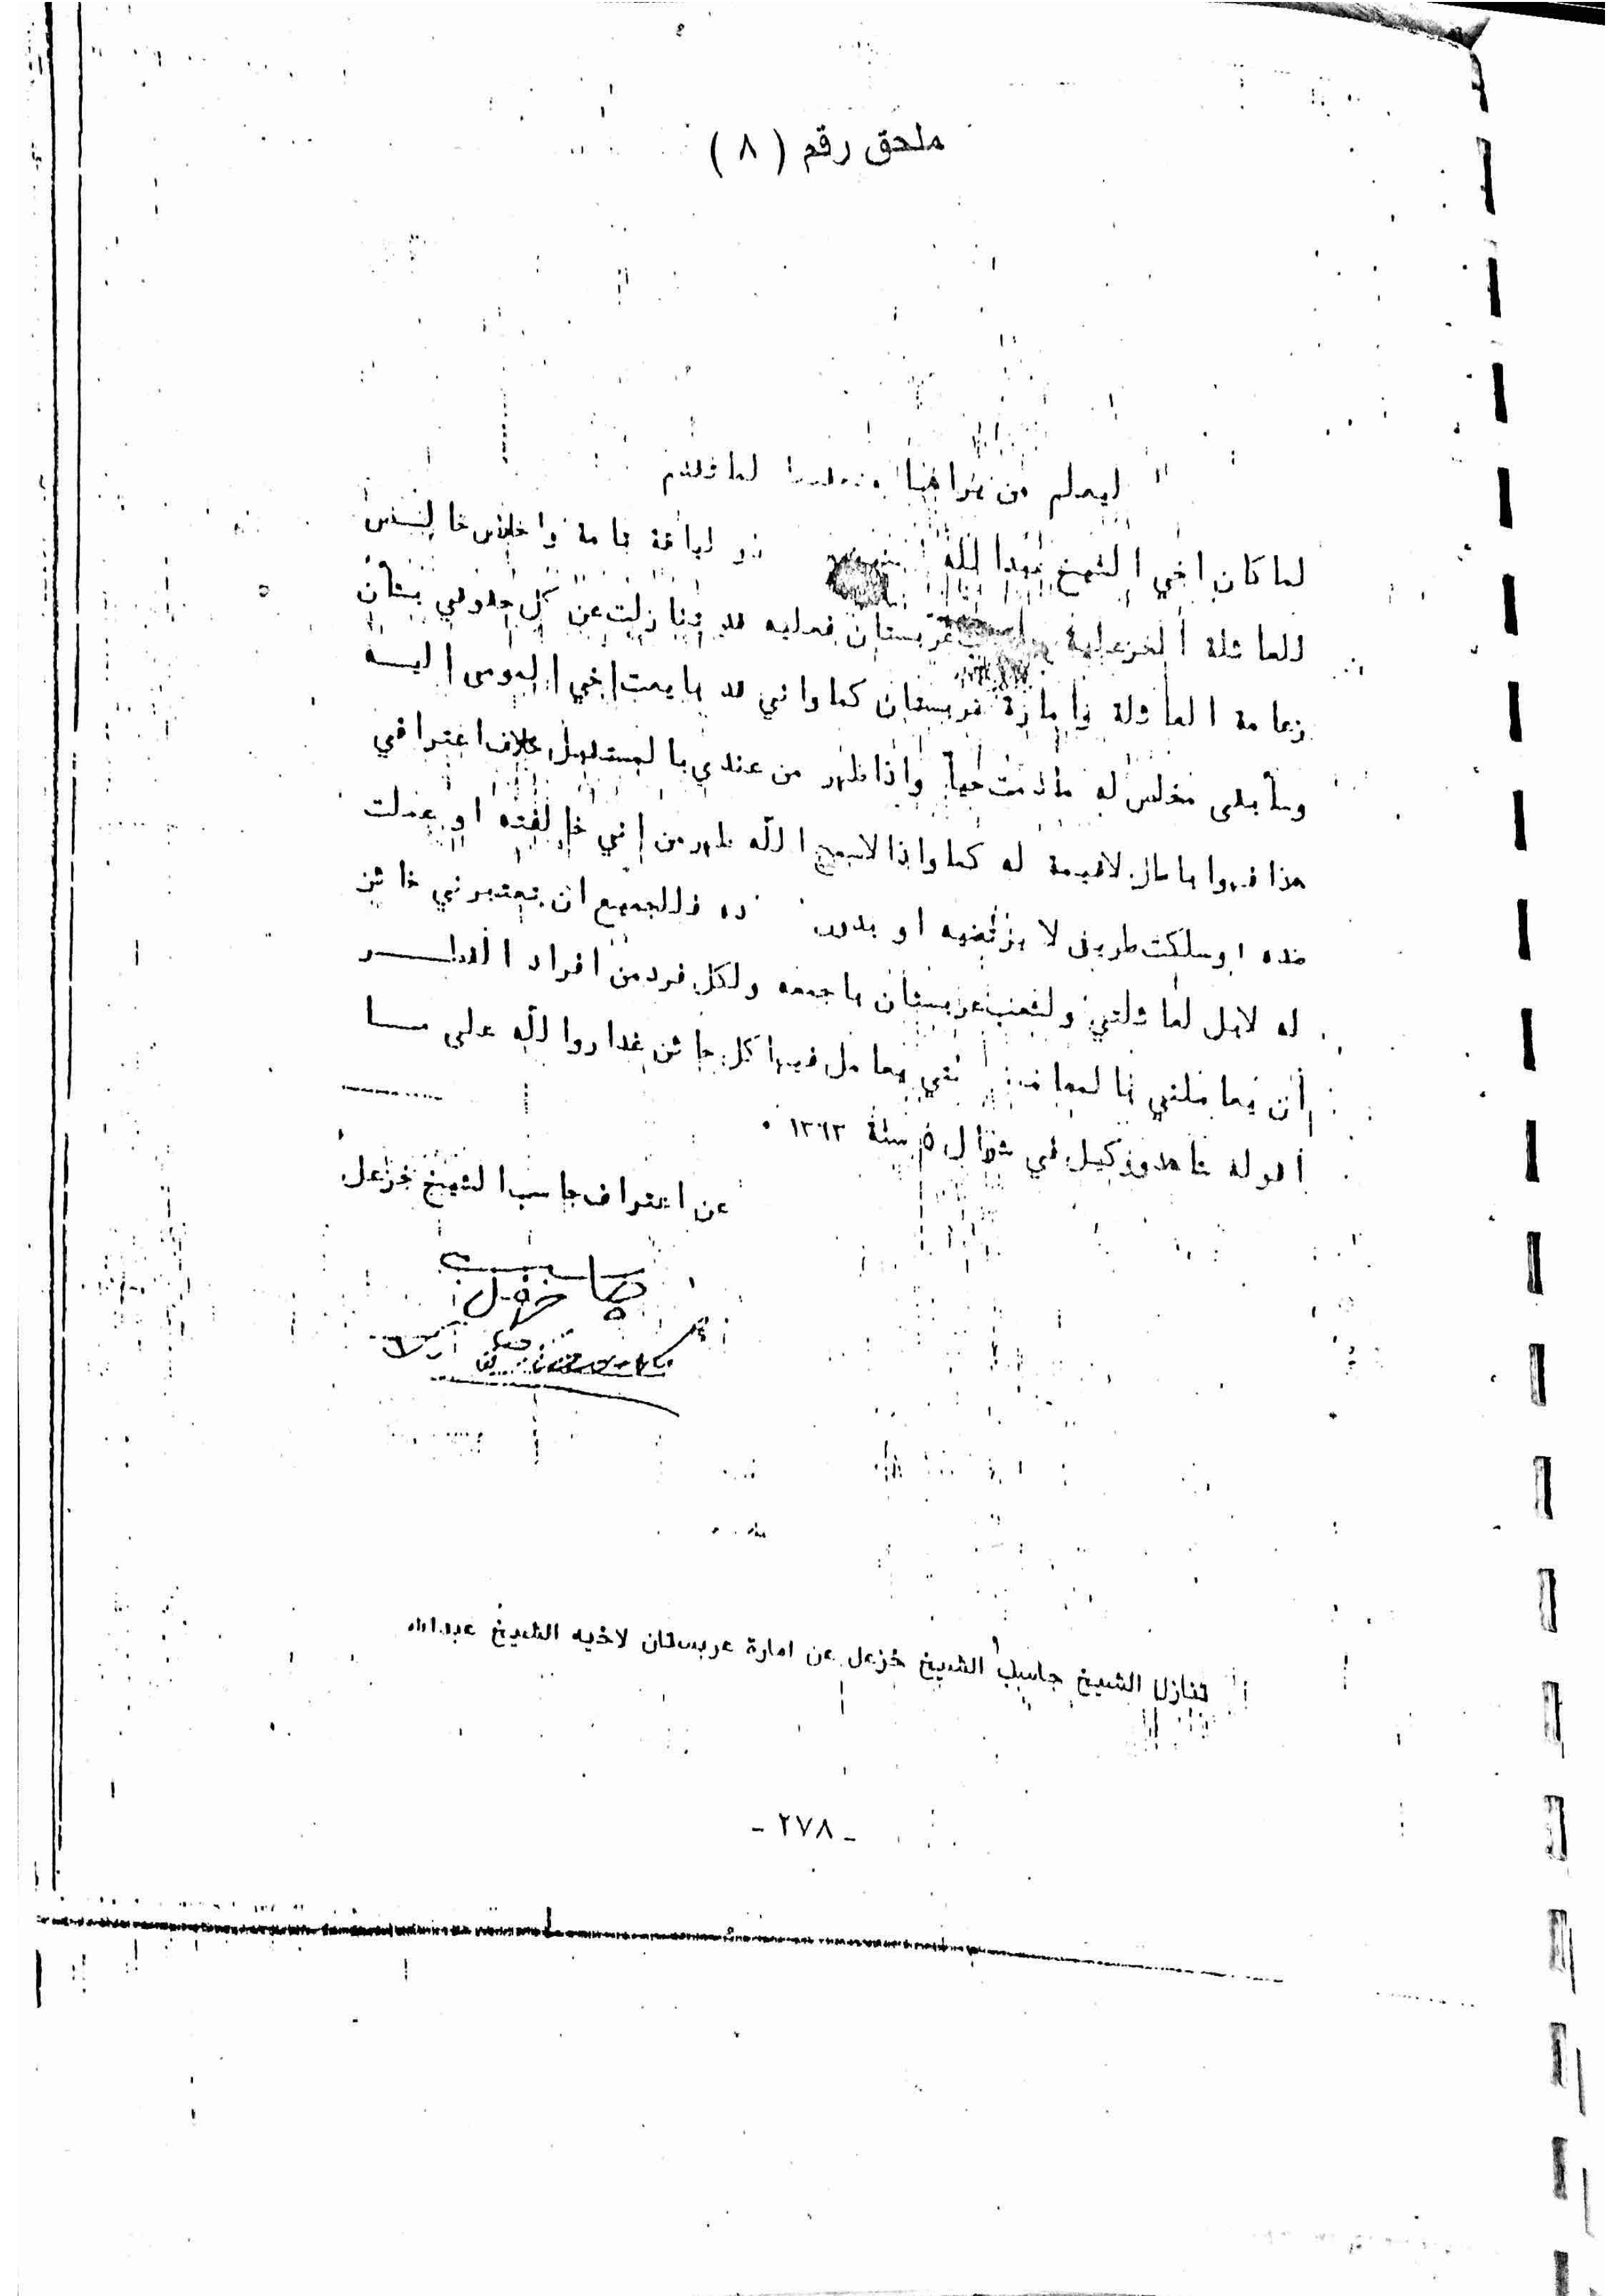 ملحق رقم ( ٨ )
ليعلم من يراها
لما كان اخي الشيخ عبدا لله ذو لياقة تامة واخلاص خا لـــص
للعائلة الخزعلية عربستان فعليه قد تنازلت عن كل حقوقي بشأن
زعامة العائلة وامارة عربستان كما واني قد بايعت اخي المومى اليــه
وسأبقى مخلص له مادمت حياً واذا ظهر من عندي بالمستقبل خلاف اعترافي
هذا فهوا باطل لاقيمة له كما واذا لاسمح الله ظهر من اني خالفته او عملت
ضده اوسلكت طريق لا يرتضيه او بدون فللجميع ان تعتبرني خائن
له لاهل لعائلتي ولشعب عربستان باجمعه ولكل فرد من افراد
أن يعاملني با يعامل فيها كل خائن غدار والله على مـــا
أقوله شاهد ووكيل في شوال ٥ سنة ١٣٦٣ .
عن اعتراف جاسب الشيخ خزعل
جاسب
خزعل
تنازل الشيخ جاسب الشيخ خزعل عن امارة عربستان لاخيه الشيخ عبدالله
- ٢٧٨ -